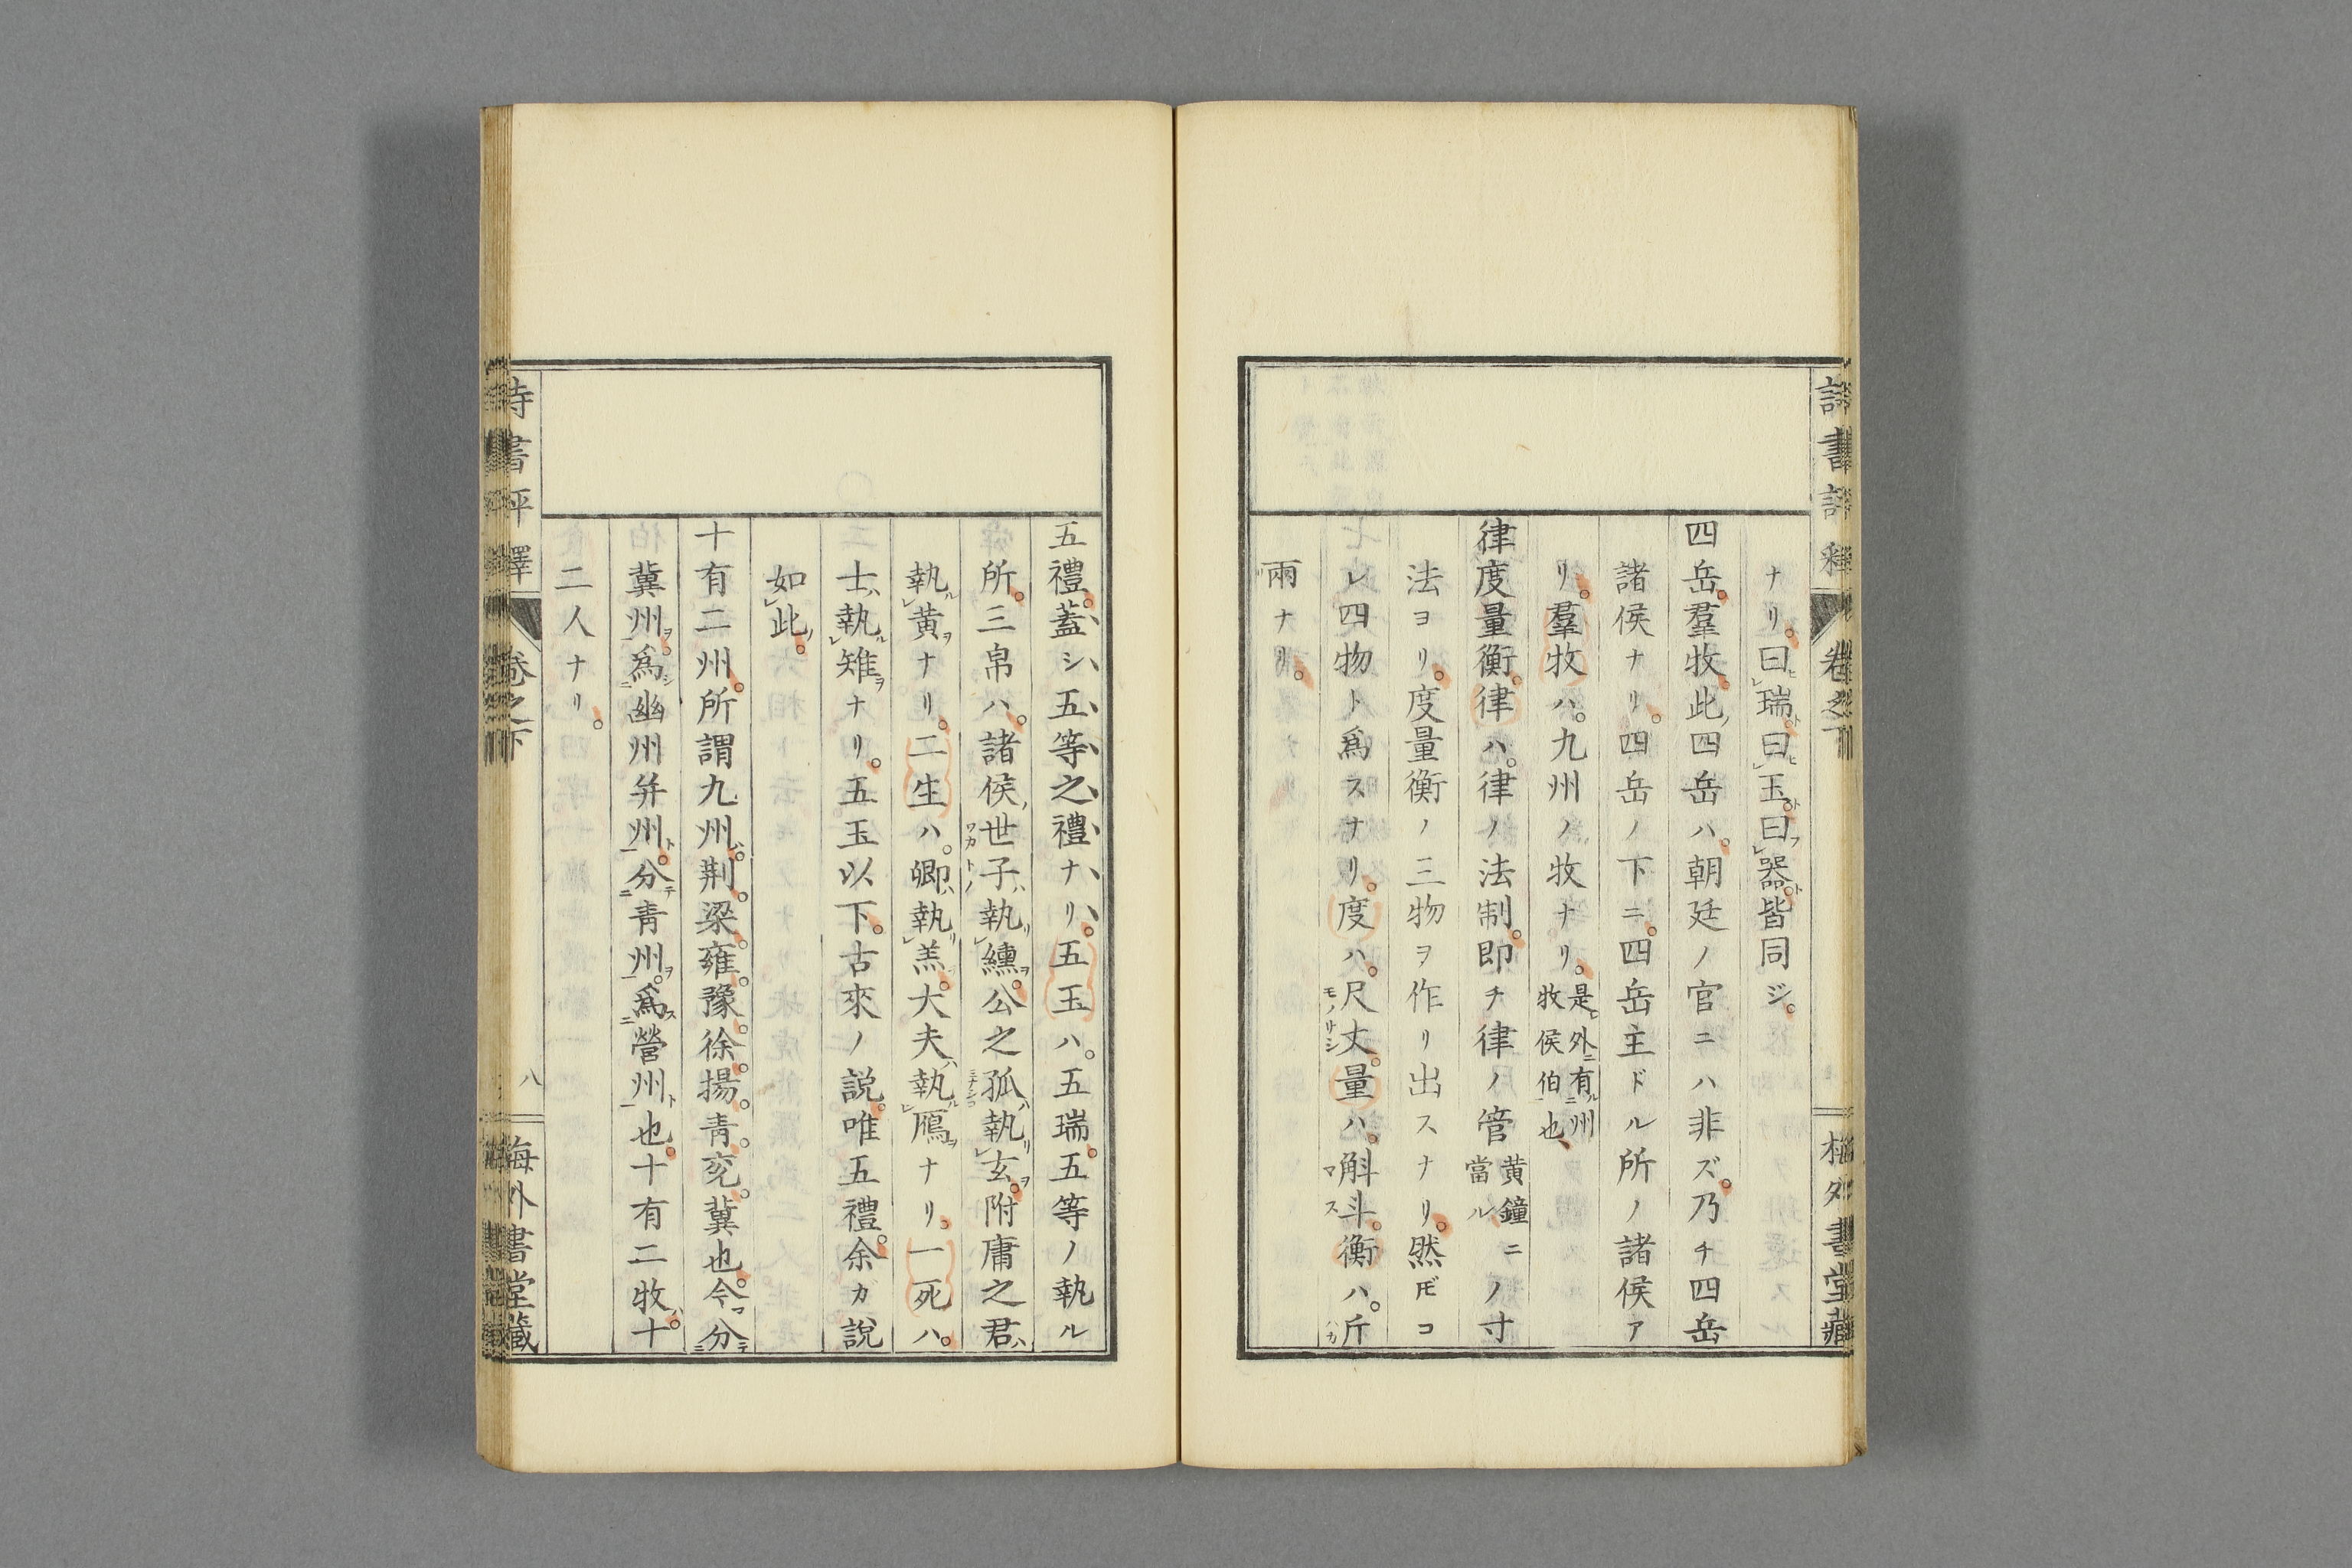 ナリ。曰瑞曰玉曰器皆同ジ。
四岳。羣牧。此四岳ハ。朝廷ノ官ニハ非ズ。乃チ四岳
諸侯ナリ。四岳ノ下ニ。四岳主ドル所ノ諸侯ア
リ。羣牧ハ。九州ノ牧ナリ。是外有州牧侯伯也
律度量衡。律ハ。律ノ法制。即チ律ノ管黄鐘ニ當ルノ寸
法ヨリ。度量衡ノ三物ヲ作リ出スナリ。然𪜈コ
レ四物ト爲スナリ。度ハ。尺丈。量ハ。斛斗。衡ハ。斤
兩ナリ。
五禮。蓋シ五等之禮ナリ。五玉ハ。五瑞。五等ノ執ル
所。三帛ハ。諸侯世子執纁。公之孤執玄。附庸之君
執黄ナリ。二生ハ。卿執羔。大夫執鴈ナリ。一死ハ。
士執雉ナリ。五玉以下。古來ノ説。唯五禮。余ガ説
如此。
十有二州。所謂九州。荆。梁。雍。豫。徐。揚。青。兗。冀也。今分
冀州。爲幽州并州。分青州。爲營州也。十有二牧。十
二人ナリ。
詩書評釋
卷之下
八
梅外書堂藏